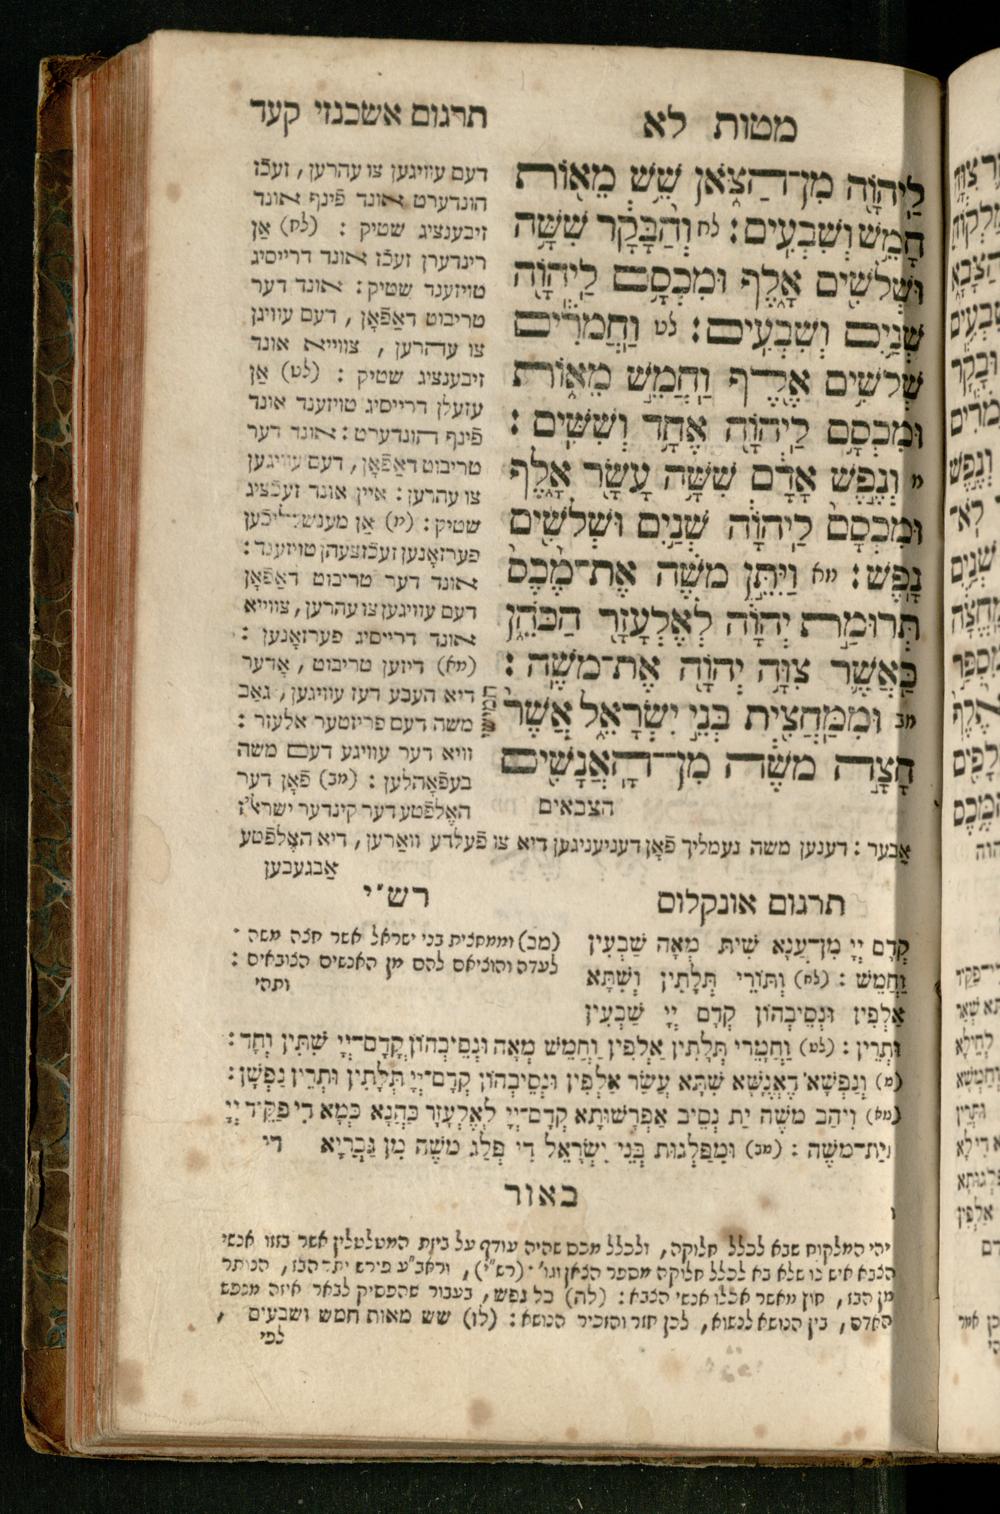 מטות לא
תרגום אשכנזי קעד
לַיהוָֹה מִן־הַצֹּאן שֵׁשׁ מֵאוֹת
חָמֵשׁ וְשִׁבְעִים: לח וְהַבָּקָר שִׁשָּׁה
וּשְׁלֹשִׁים אָלֶף וּמִכְסָם לַיהוָֹה
שְׁנַיִם וְשִׁבְעִים: לט וַחֲמֹרִים
שְׁלֹשִׁים אֶלֶף וַחֲמֵשׁ מֵאוֹת
וּמִכְסָם לַיהוָֹה אֶחָד וְשִׁשִּׁים:
מ וְנֶפֶשׁ אָדָם שִׁשָּׁה עָשָׂר אָלֶף
וּמִכְסָם לַיהוָֹה שְׁנַיִם וּשְׁלֹשִׁים
נָפֶשׁ: מא וַיִּתֵּן משֶׁה אֶת־מֶכֶס
תְּרוּמַת יְהוָֹה לְאֶלְעָזָר הַכֹּהֵן
כַּאֲשֶׁר צִוָּה יְהוָֹה אֶת־משֶׁה:
חמישי
מב וּמִמַּחֲצִית בְּנֵי יִשְׂרָאֵל אֲשֶׁר
חָצָה משֶׁה מִן־הָאֲנָשִׁים
הצבאים
דעם עוויגען צו עהרען, זעכֿז
הונדערט אונד פֿינף אונד
זיבענציג שטיק: (לח) אַן
רינדערן זעכֿז אונד דרייסיג
טויזענד שטיק: אונד דער
טריבוט דאַפֿאָן, דעם עוויגן
צו עהרען, צווייא אונד
זיבענציג שטיק: (לט) אַן
עזעלן דרייסיג טויזענד אונד
פֿינף הונדערט: אונד דער
טריבוט דאַפֿאָן, דעם עוויגען
צו עהרען: איין אונד זעכֿציג
שטיק: (מ) אַן מענשליכֿען
פערזאָנען זעכֿזצעהן טויזענד:
אונד דער טריבוט דאַפֿאָן
דעם עוויגען צו עהרען, צווייא
אונד דרייסיג פערזאָנען:
(מא) דיזען טריבוט, אָדער
דיא העבע דעז עוויגען, גאַב
משה דעם פריזטער אלעזר:
וויא דער עוויגע דעם משה
בעפֿאָהלען: (מב) פֿאָן דער
האֶלפֿטע דער קינדער ישראל'ז
אַבער: דענען משה נעמליך פֿאָן דעניעניגען דיא צו פֿעלדע וואַרען, דיא האֶלפֿטע
אַבגעבען
תרגום אונקלוס
קֳדָם יְיָ מִן־עָנָא שִׁית מְאָה שַׁבְעִין
וַחֲמֵשׁ: (לח) וְתוֹרֵי תְּלָתִין וְשִׁתָּא
אַלְפִין וּנְסֵיבְהוֹן קֳדָם יְיָ שַׁבְעִין
וּתְרֵין: (לט) וַחֲמָרֵי תְּלָתִין אַלְפִין וַחֲמֵשׁ מְאָה וּנְסֵיבְהוֹן קֳדָם־יְיָ שִׁתִּין וְחָד:
(מ) וְנַפְשָׁא דֶאֱנָשָׁא שִׁתָּא עֲשַׂר אַלְפִין וּנְסֵיבְהוֹן קֳדָם־יְיָ תְּלָתִין וּתְרֵין נַפְשָׁן:
(מא) וִיהַב משֶׁה יַת נְסֵיב אַפְרָשׁוּתָא קֳדָם־יְיָ לְאֶלְעָזָר כַּהֲנָא כְּמָא דִי פַקִּיד יְיָ
יַת־משֶׁה: (מב) וּמִפַּלְגוּת בְּנֵי יִשְׂרָאֵל דִּי פְלַג משֶׁה מִן גֻּבְרַיָּא
די
רש"י
(מב) וממחצית בני ישראל אשר חצה משה
לעדה והוציאם להם מן האנשים הצובאים:
ותהי
באור
יהי המלקוח שבא לכלל חלוקה, ולכלל מכס שהיה עודף על ביזת המטלטלין אשר בזזו אנשי
הצבא איש לו שלא בא לכלל חלוקה מספר הצאן וגו' (רש"י), וראב"ע פירש יתר הבז, הנותר
מן הבז, חוץ מאשר אכלו אנשי הצבא: (לה) כל נפש, בעבור שהפסיק לבאר איזה מנפש
האדם, בין הנושא לנשוא, לכן חזר והזכיר הנושא: (לו) שש מאות חמש ושבעים,
לפי